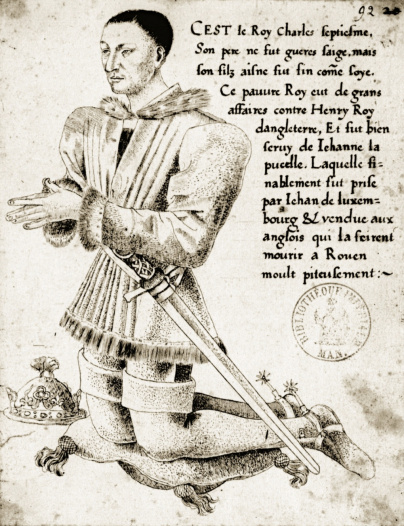 92
CEST le Roy Charles septiesme,
Son pere ne fut gueres saige, mais
son filz aisne fut fin come soye.
Ce pauure Roy eut de grans
affaires contre Henry Roy
dangleterre, Et fut bien
seruy de Iehanne la
pucelle. Laquelle fi=
nablement fut prise
par Iehan de luxem=
bourg & vendue aux
anglois qui la feirent
mourir a Rouen
moult piteusement :~
BIBLIOTHÈQUE
MAN.